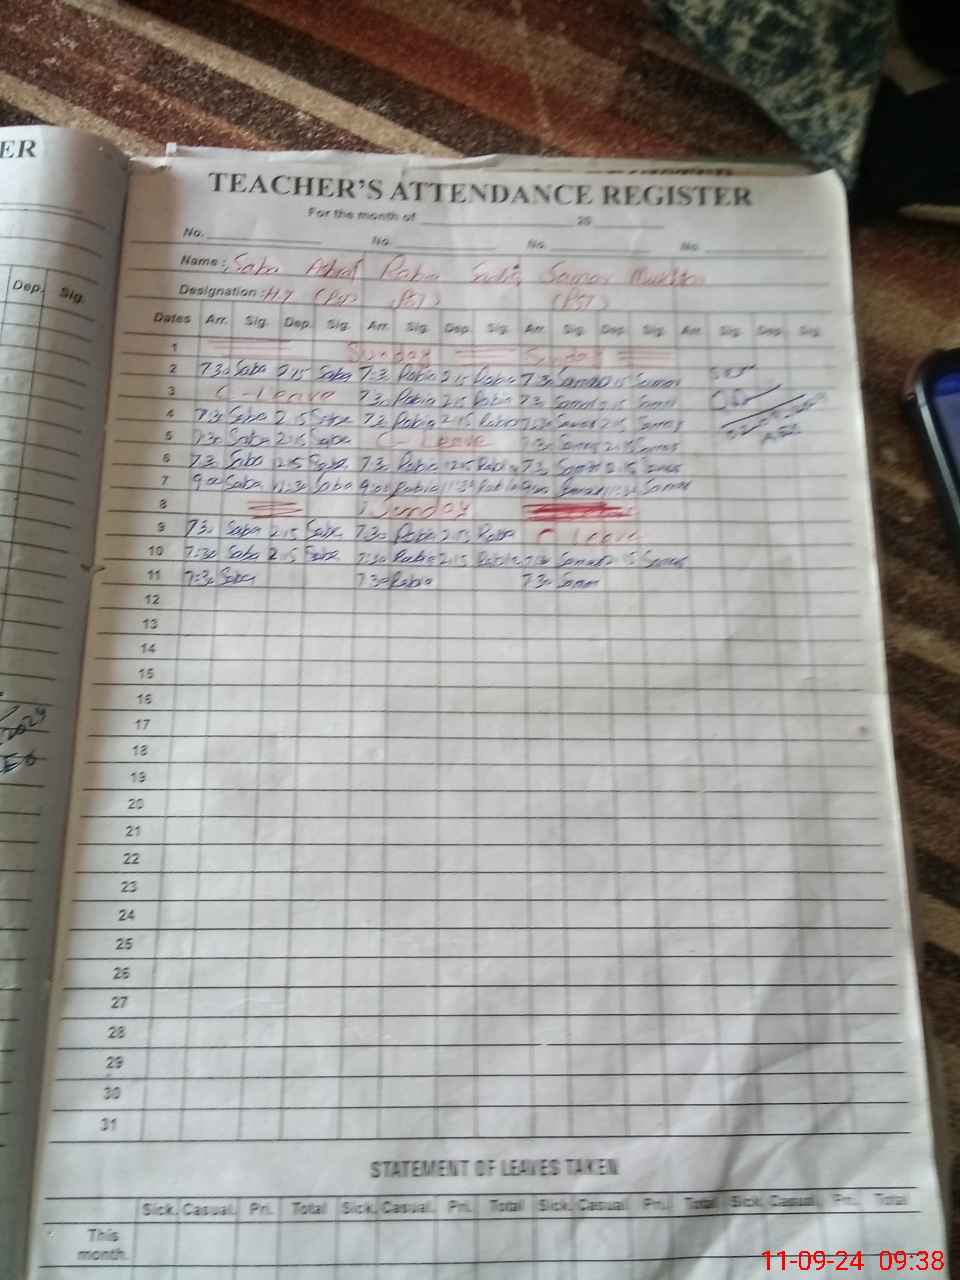 ER
TEACHER'S ATTENDANCE REGISTER
For the month of 20
No. No. No. No.
Name: Saba Ashraf Rabia Sadiq Saman Mukhtar
Designation: (PST) (PST)
Dep. Sig.
Dates Arr. Sig. Dep. Sig. Arr. Sig. Dep. Sig. Arr. Sig. Dep. Sig. Arr. Sig. Dep. Sig.
1 Sunday Sunday
2 7:30 Saba 2:15 Saba 7:30 Rabia 2:15 Rabia 7:30 Saman 2:15 Saman
3 C-Leave 7:30 Rabia 2:15 Rabia 7:30 Saman 2:15 Saman
4 7:30 Saba 2:15 Saba 7:30 Rabia 2:15 Rabia 7:30 Saman 2:15 Saman
5 7:30 Saba 2:15 Saba C-Leave 7:30 Saman 2:15 Saman
6 7:30 Saba 2:15 Saba 7:30 Rabia 2:15 Rabia 7:30 Saman 2:15 Saman
7 9:00 Saba 11:30 Saba 9:00 Rabia 11:30 Rabia 9:00 Saman 11:30 Saman
8 Sunday
9 7:30 Saba 2:15 Saba 7:30 Rabia 2:15 Rabia C Leave
10 7:30 Saba 2:15 Saba 7:30 Rabia 2:15 Rabia 7:30 Saman 2:15 Saman
11 7:30 Saba 7:30 Rabia 7:30 Saman
12
13
14
15
16
17
18
19
20
21
22
23
24
25
26
27
28
29
30
31
STATEMENT OF LEAVES TAKEN
Sick. Casual. Pri. Total Sick. Casual. Pri. Total Sick. Casual. Pri. Total Sick. Casual. Pri. Total
This
month.
11-09-24 09:38